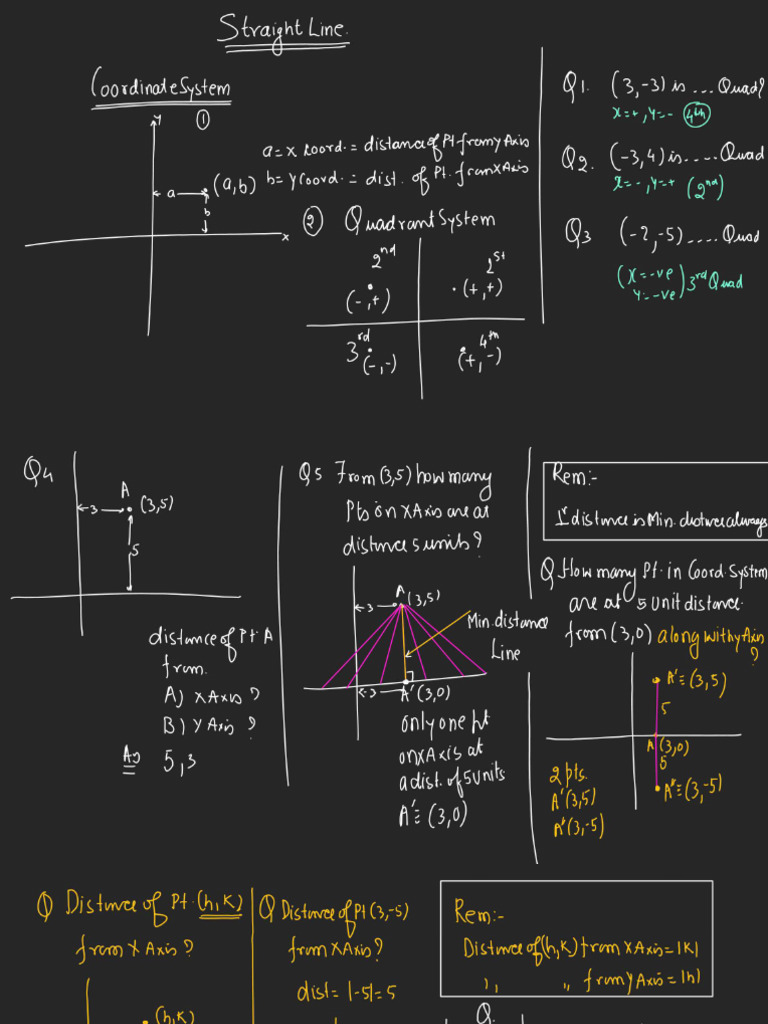 Straight Line.
Coordinate System
①
y
a
(a,b)
b
x
a = x Coord. = distance of Pt from y Axis
b = y Coord = dist. of Pt. from X Axis
② Quadrant System
2nd
(-,+)
(+,+)
3rd
(-,-)
4th
(+,-)
Q1. (3,-3) is ... Quad?
x=+, y=- 4th
Q2. (-3,4) is .... Quad
x=-, y=+ (2nd)
Q3 (-2,-5) .... Quad
(x=-ve
y=-ve) 3rd Quad
Q4
A
3
(3,5)
5
distance of Pt A
from.
A) X Axis?
B) Y Axis?
As 5,3
Q5 From (3,5) how many
Pts on X Axis are at
distance 5 units?
A
3
(3,5)
Min. distance
Line
3
A'(3,0)
only one pt
on x Axis at
a dist. of 5 units
A' ≡ (3,0)
Rem:-
1r distance is Min. distance always
Q How many Pt. in Coord. System
are at 5 unit distance
from (3,0) along with y Axis
?
A' ≡ (3,5)
5
A (3,0)
5
A" ≡ (3,-5)
2 pts.
A'(3,5)
A"(3,-5)
Q Distance of Pt. (h,k)
from X Axis?
(h,k)
Q Distance of Pt (3,-5)
from X Axis?
dist = |-5| = 5
Rem:-
Distance of (h,k) from X Axis = |k|
,, ,, from y Axis = |h|
Q.